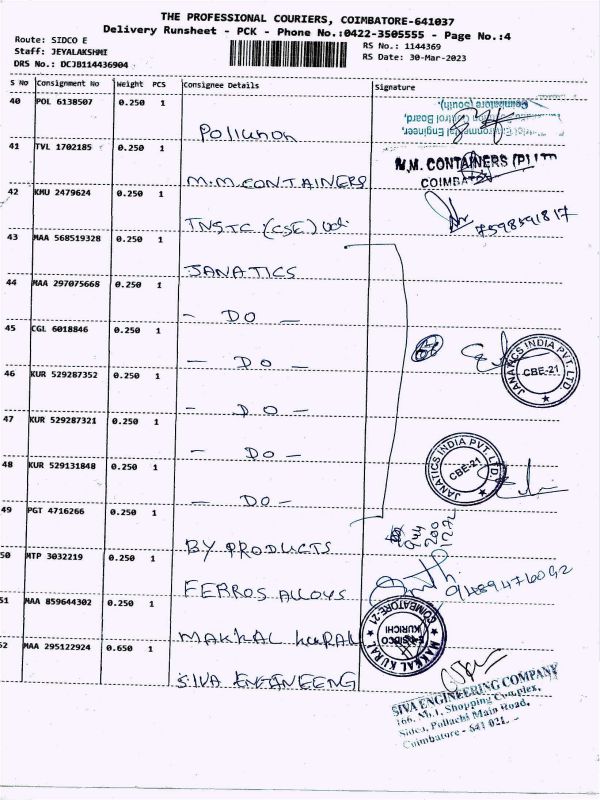 THE PROFESSIONAL COURIERS, COIMBATORE-641037
Delivery Runsheet - PCK - Phone No.:0422-3505555 - Page No.:4
Route: SIDCO E
Staff: JEYALAKSHMI
DRS No.: DCJB114436904
RS No.: 1144369
RS Date: 30-Mar-2023
S No Consignment No Weight PCS Consignee Details Signature
40 POL 6138507 0.250 1
Pollution
Coimbatore (South).
Control Board,
Environmental Engineer,
41 TVL 1702185 0.250 1
M.M. CONTAINERS
M.M. CONTAINERS (P) LTD
COIMBA
42 KMU 2479624 0.250 1
TNSTC (CSE)
7598591817
43 MAA 568519328 0.250 1
JANATICS
44 MAA 297075668 0.250 1
- DO -
45 CGL 6018846 0.250 1
- DO -
JANATICS INDIA PVT. LTD
CBE-21
46 KUR 529287352 0.250 1
- DO -
47 KUR 529287321 0.250 1
- DO -
JANATICS INDIA PVT. LTD
CBE-21
48 KUR 529131848 0.250 1
- DO -
49 PGT 4716266 0.250 1
BY PRODUCTS
944
200
1272
50 MTP 3032219 0.250 1
FERROS ALLOYS
9489476092
51 MAA 859644302 0.250 1
MAKKAL KURAL
MAKKAL KURAL
COIMBATORE-21
SIDCO
KURICHI
52 MAA 295122924 0.650 1
SIVA ENGINEENG
SIVA ENGINEERING COMPANY
166, Shopping Complex,
Sidco, Pollachi Main Road,
Coimbatore - 641 021.